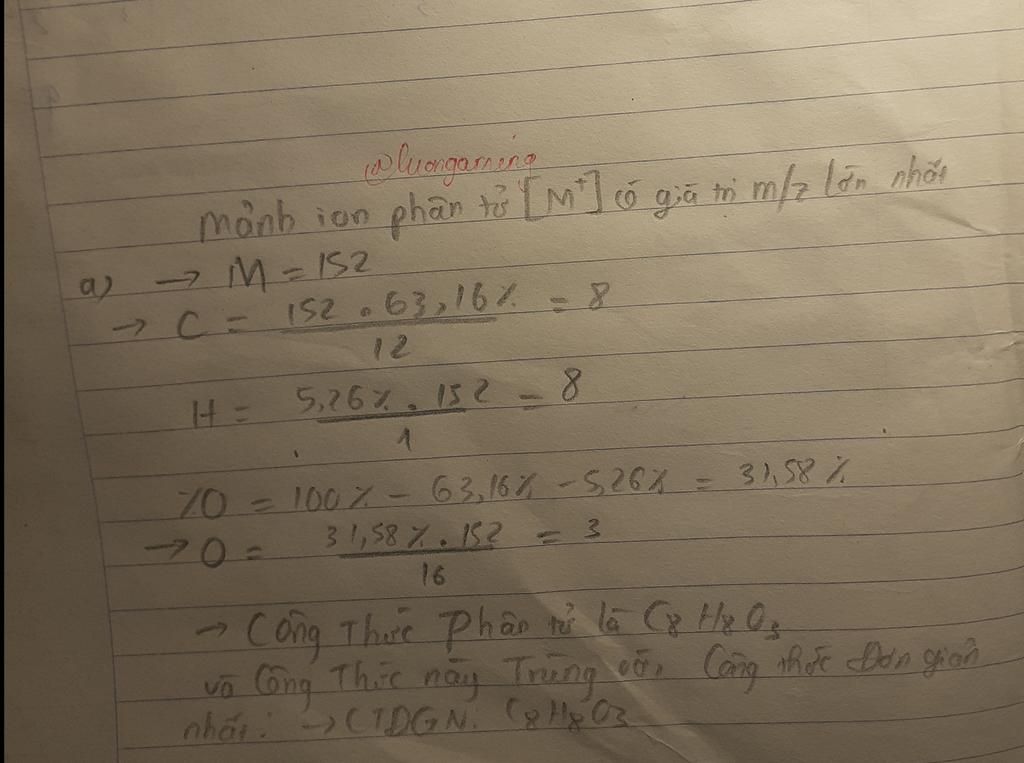 @luongaming
mảnh ion phân tử [M⁺] có giá trị m/z lớn nhất
a) → M = 152
→ C = 152 . 63,16% / 12 = 8
H = 5,26% . 152 / 1 = 8
%O = 100% - 63,16% - 5,26% = 31,58%
→ O = 31,58% . 152 / 16 = 3
→ Công Thức Phân tử là C₈H₈O₃
và Công Thức này Trùng với Công thức Đơn giản
nhất: → CTDGN: C₈H₈O₃